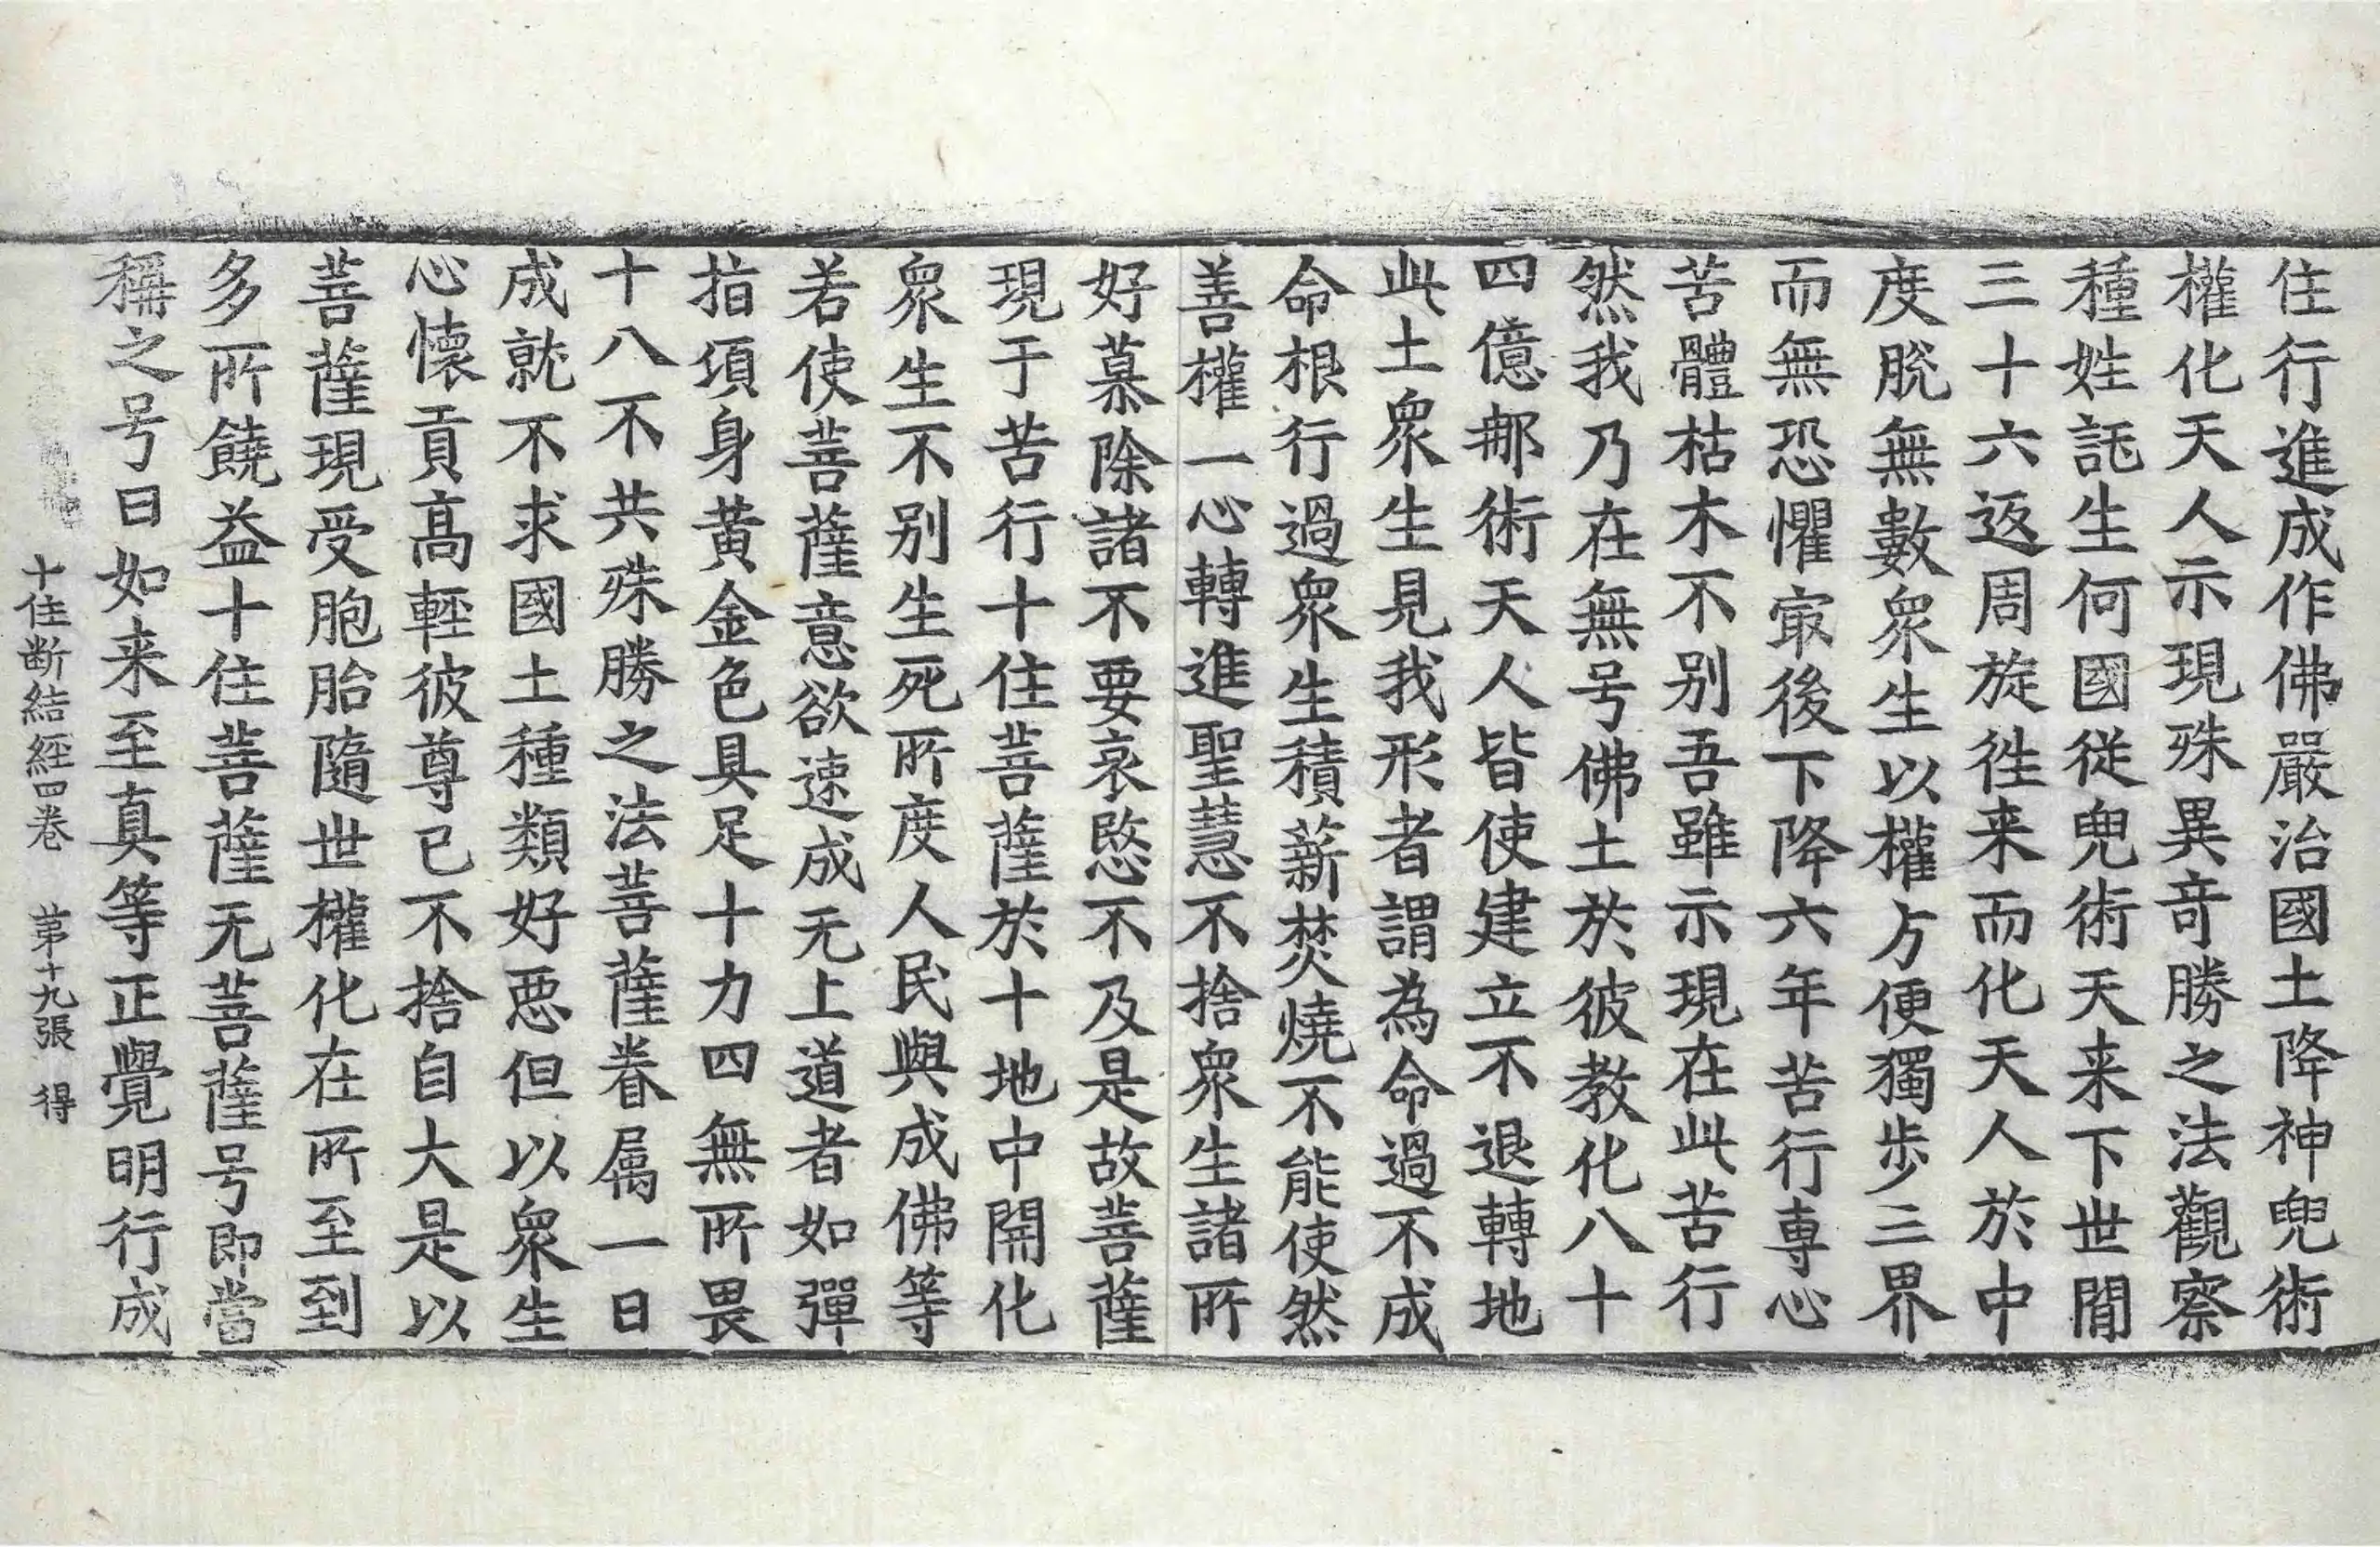 住行進成作佛嚴治國土降神兜術
權化天人示現殊異竒勝之法觀察
種姓託生何國從兜術天来下世間
三十六返周旋徃来而化天人於中
度脫無數衆生以權方便獨步三界
而無恐懼冣後下降六年苦行専心
苦體枯木不别吾雖示現在此苦行
然我乃在無号佛土於彼教化八十
四億那術天人皆使建立不退轉地
此土衆生見我形者謂為命過不成
命根行過衆生積薪焚燒不能使然
善權一心轉進聖慧不捨衆生諸所
好慕除諸不要哀愍不及是故菩薩
現于苦行十住菩薩於十地中開化
衆生不别生死所度人民與成佛等
若使菩薩意欲速成无上道者如彈
指頃身黄金色具足十力四無所畏
十八不共殊勝之法菩薩眷属一日
成就不求國土種類好惡但以衆生
心懷貢高輕彼尊已不捨自大是以
菩薩現受胞胎隨世權化在所至到
多所饒益十住菩薩无菩薩号即當
稱之号曰如来至真等正覺明行成
十住断結経四卷 苐十九張 得